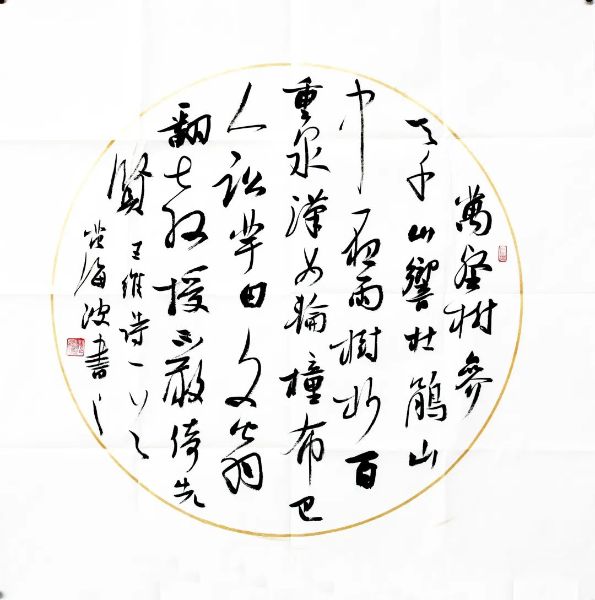 萬壑树參
天千山響杜鵑山
中一夜雨樹杪百
重泉漢女輸橦布巴
人訟芋田文翁
翻教授不敢倚先
賢 王維詩一首
海波書